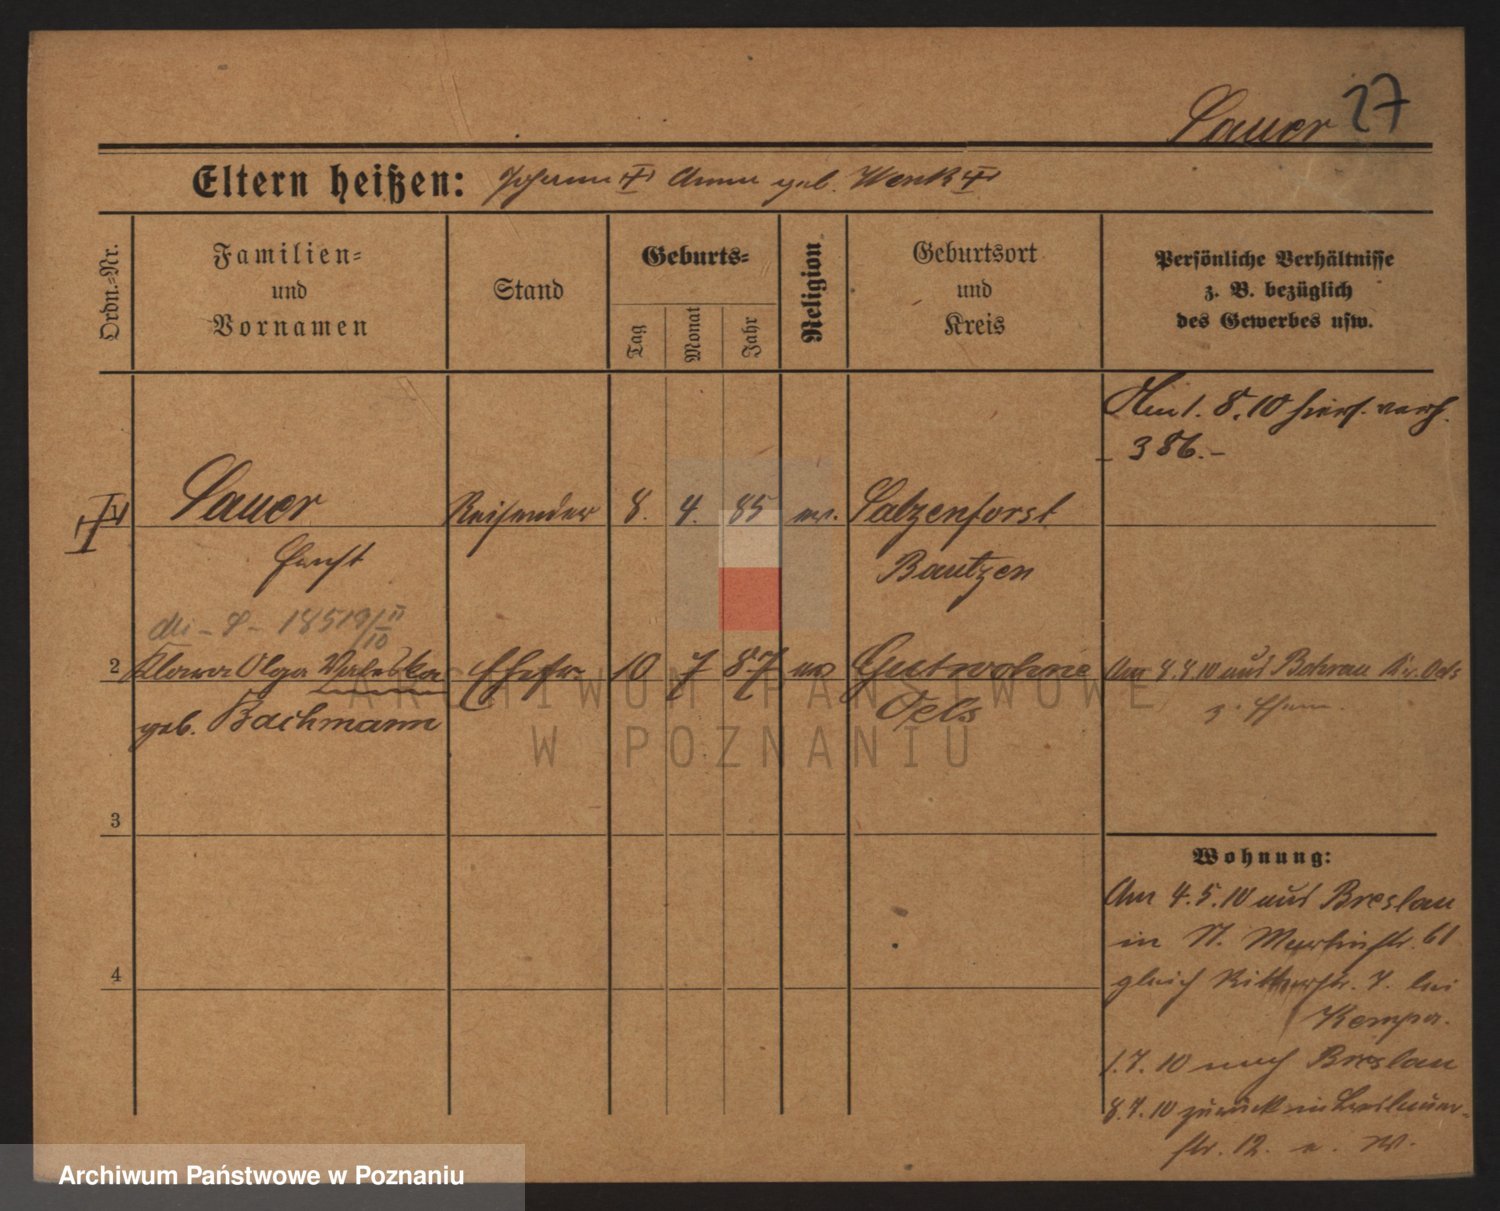 Sauer 27
Eltern heißen: Johann Anna geb. Wenk
Ordn.-Nr.
Familien-
und
Vornamen
Stand
Geburts-
Tag
Monat
Jahr
Religion
Geburtsort
und
Kreis
Persönliche Verhältnisse
z. B. bezüglich
des Gewerbes usw.
Am 1. 8. 10 hiers. verh.
386.-
Sauer Reisender 8. 4. 85 ev. Salzenforst
Ernst Bautzen
18519/10
2 Klara Olga Valeska Ehefr. 10 7 87 ev Gutwohne Am 4.4.10 aus Bohrau Kr. Oels
geb. Bachmann Oels
3
4
Wohnung:
Am 4.5.10 aus Breslau
in St. Martinstr. 61
gleich Ritterstr. 7. bei
Kempa.
1.7.10 nach Breslau
8.7.10 zurück in Breslauer-
str. 12.
ARCHIWUM PAŃSTWOWE
W POZNANIU
Archiwum Państwowe w Poznaniu